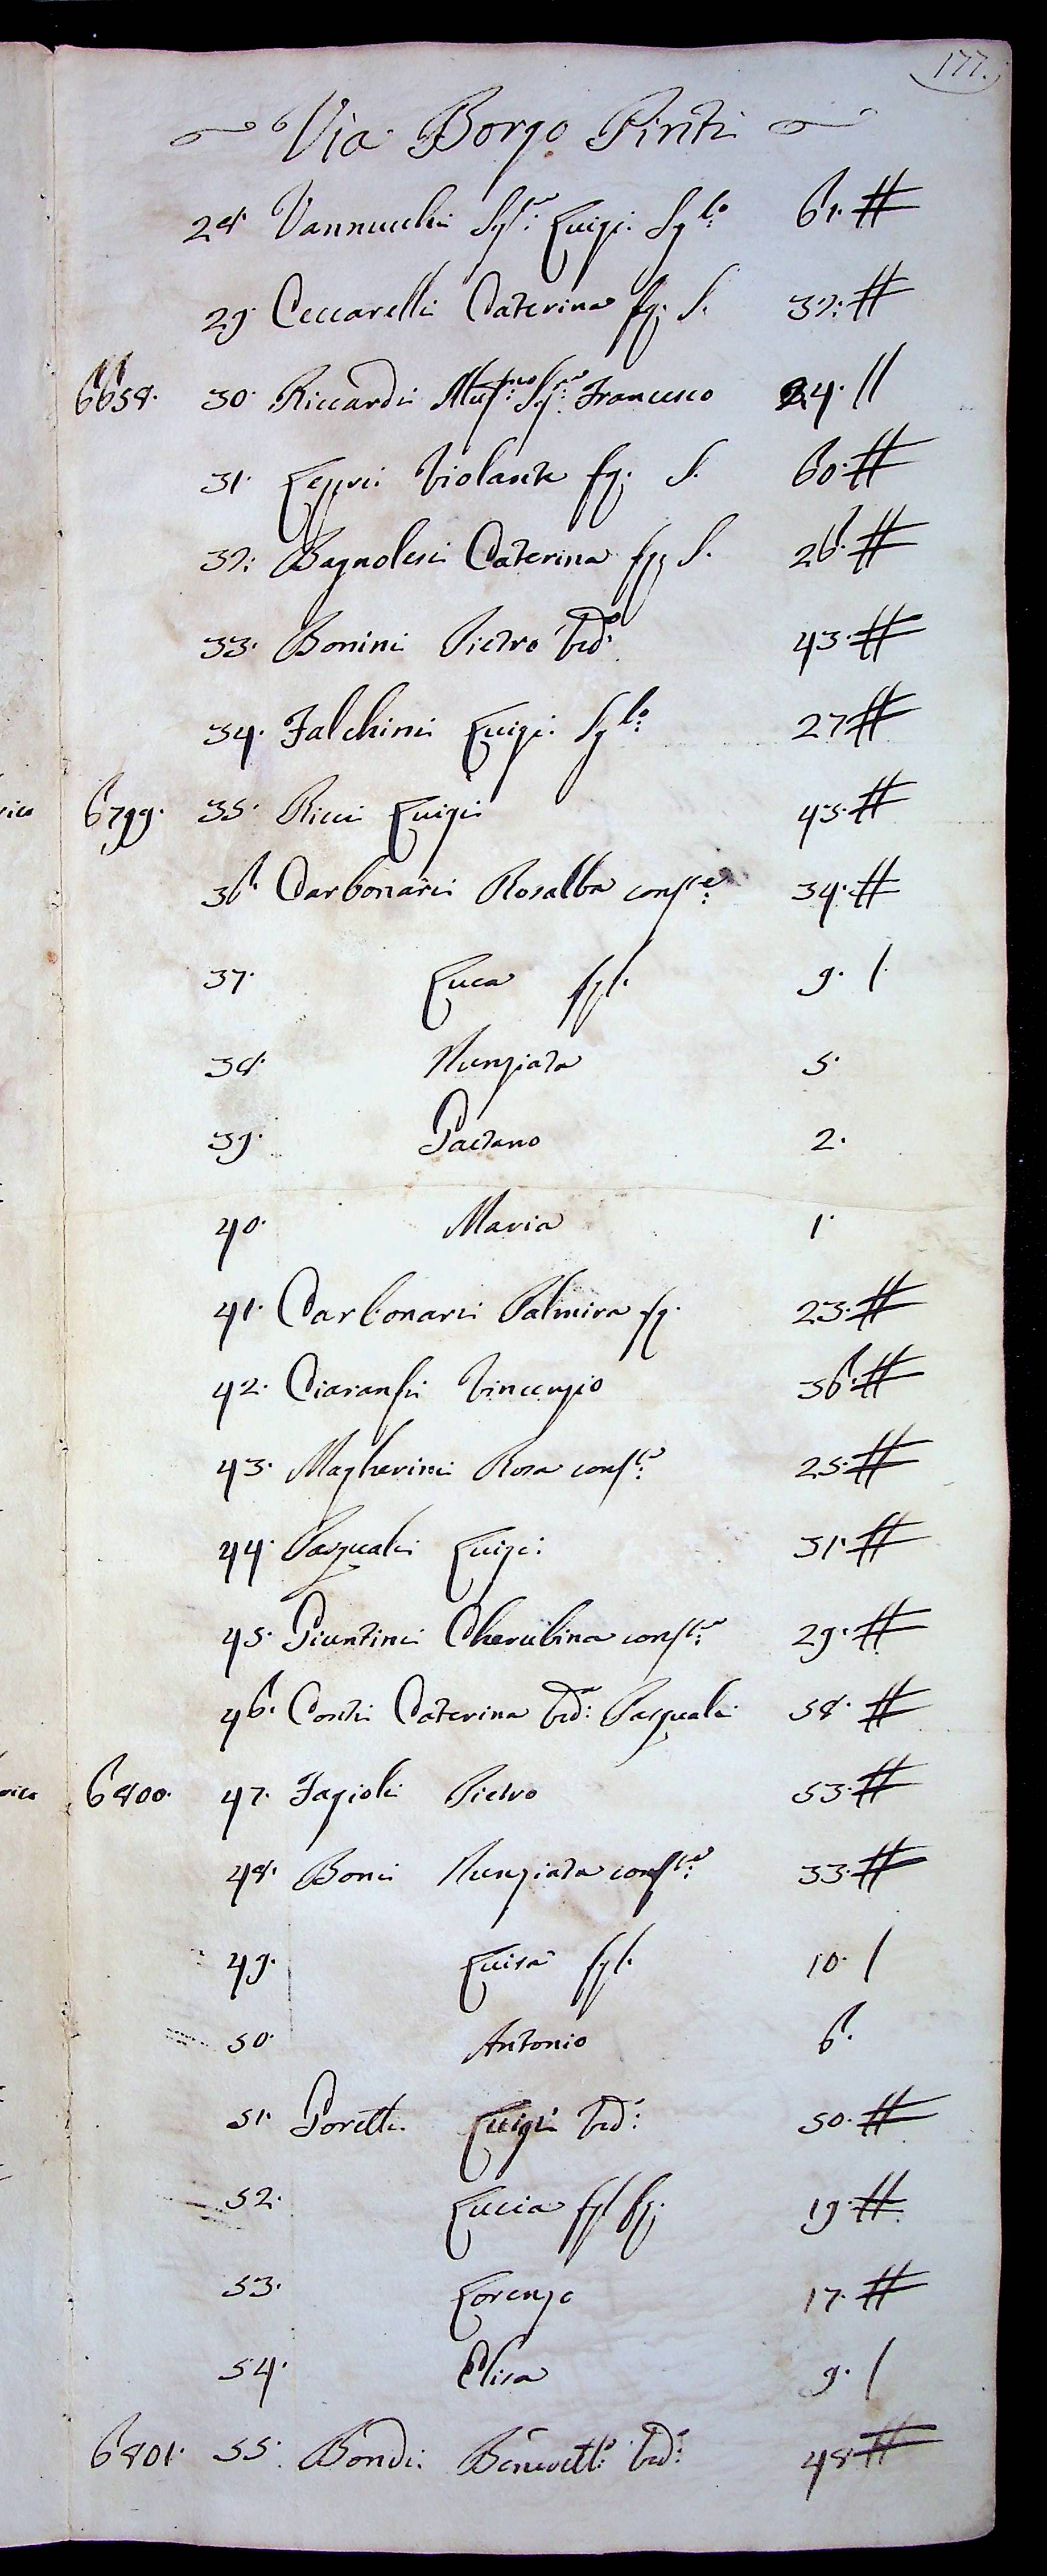 177.
Via Borgo Pinti
28. Vannucchi Sig.re Luigi. Sc.lo 61. #
29. Ceccarelli Caterina fg. S. 32: #
6658. 30. Riccardi Ill.mo Sig.re Francesco 24. //
31. Leppri Violante fg. S. 60. #
32: Bagnolesi Caterina fg. S. 26. #
33. Bonini Pietro Ved.o 43. #
34. Falchini Luigi. Sc.lo 27 #
6799. 35. Ricci Luigi 45. #
36. Carbonari Rosalba cons.te 34. #
37. Luca figl. 9. /
38. Nunziata 5.
39. Gaetano 2.
40. Maria 1.
41. Carbonari Palmira fg. 23. #
42. Ciaranfi Vincenzio 36. #
43. Magherini Rosa cons.te 25. #
44. Pasquali Luigi. 31. #
45. Giuntini Cherubina cons.te 29. #
46. Conti Caterina Ved.a Pasquali 58. #
6800. 47. Fagioli Pietro 53. #
48. Boni Nunziata cons.te 33. #
49. Luisa figl. 10. /
50. Antonio 6.
51. Poretti. Luigi Ved.o 50. #
52. Lucia figl. fg. 19. #
53. Lorenzo 17. #
54. Elisa 9. /
6801. 55. Bondi. Benedett.o Ved.o 48 #